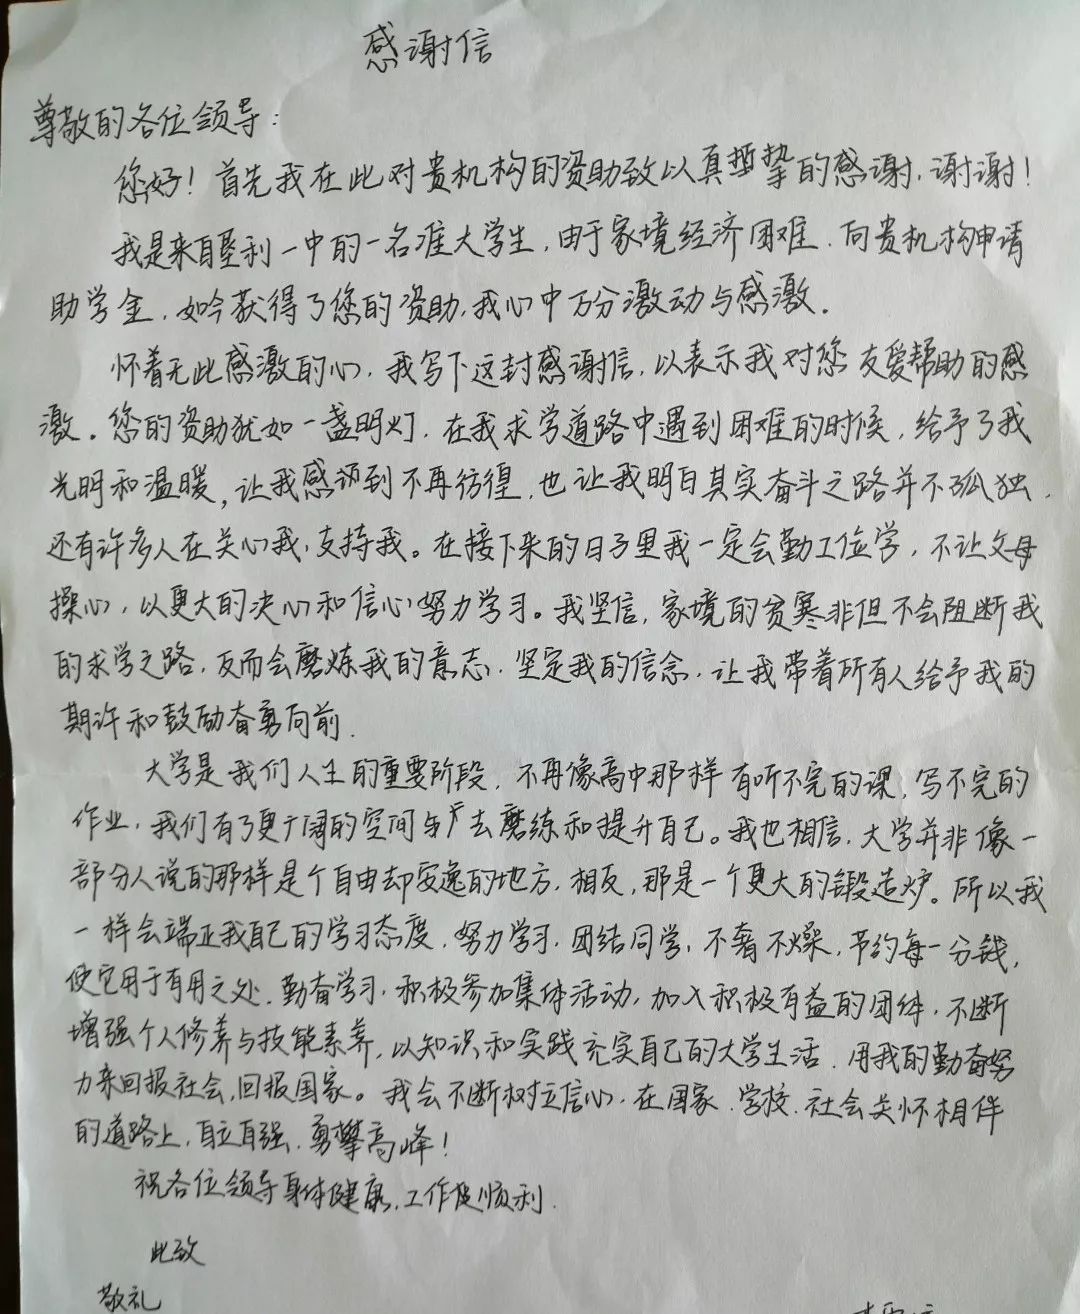 感谢信
尊敬的各位领导：
您好！首先我在此对贵机构的资助致以真挚的感谢，谢谢！
我是来自垦利一中的一名准大学生，由于家境经济困难，向贵机构申请
助学金，如今获得了您的资助，我心中万分激动与感激。
怀着无比感激的心，我写下这封感谢信，以表示我对您友爱帮助的感
激。您的资助犹如一盏明灯，在我求学道路中遇到困难的时候，给予了我
光明和温暖，让我感到不再彷徨，也让我明白其实奋斗之路并不孤独，
还有许多人在关心我，支持我。在接下来的日子里我一定会勤工位学，不让父母
操心，以更大的决心和信心努力学习。我坚信，家境的贫寒非但不会阻断我
的求学之路，反而会磨炼我的意志，坚定我的信念，让我带着所有人给予我的
期许和鼓励奋勇向前．
大学是我们人生的重要阶段，不再像高中那样有听不完的课，写不完的
作业，我们有了更广阔的空间与去磨练和提升自己。我也相信，大学并非像一
部分人说的那样是个自由却安逸的地方，相反，那是一个更大的锻造炉。所以我
一样会端正我自己的学习态度，努力学习，团结同学，不奢不燥，节约每一分钱，
使它用于有用之处．勤奋学习，积极参加集体活动，加入积极有益的团体，不断
增强个人修养与技能素养，以知识和实践充实自己的大学生活．用我的勤奋努
力来回报社会，回报国家。我会不断树立信心，在国家．学校．社会关怀相伴
的道路上，自立自强．勇攀高峰！
祝各位领导身体健康，工作顺利．
此致
敬礼